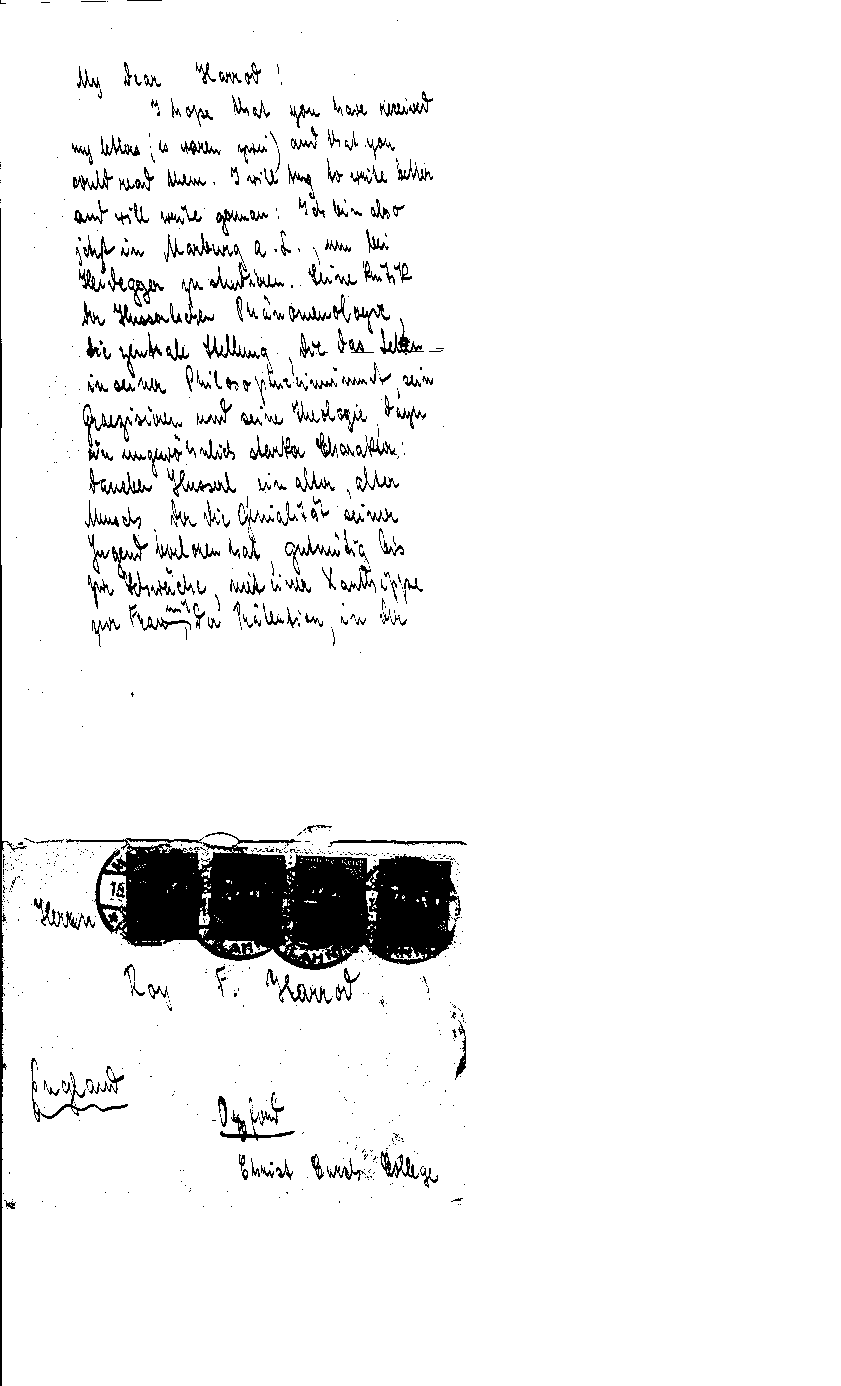 My Dear Harrod!
I hope that you have received
my letters (es waren zwei) and that you
could read them. I will try to write better
and will write german: Ich bin also
jetzt in Marburg a. L., um bei
Heidegger zu studieren. Seine Kritik
der Husserlschen Phänomenologie,
die zentrale Stellung, die das Leben
in seiner Philosophie einnimmt, sein
Graezisieren und seine Theologie, dazu
ein ungewöhnlich starker Charakter:
Daneben Husserl ein alter, alter
Mensch, der die Genialität seiner
Jugend verloren hat, gutmütig bis
zur Schwäche, mit einer Xanthippe
zur Frau, mit der Prätention, in der
Herrn
LAHN
Roy F. Harrod
England
Oxford
Christ Curch College